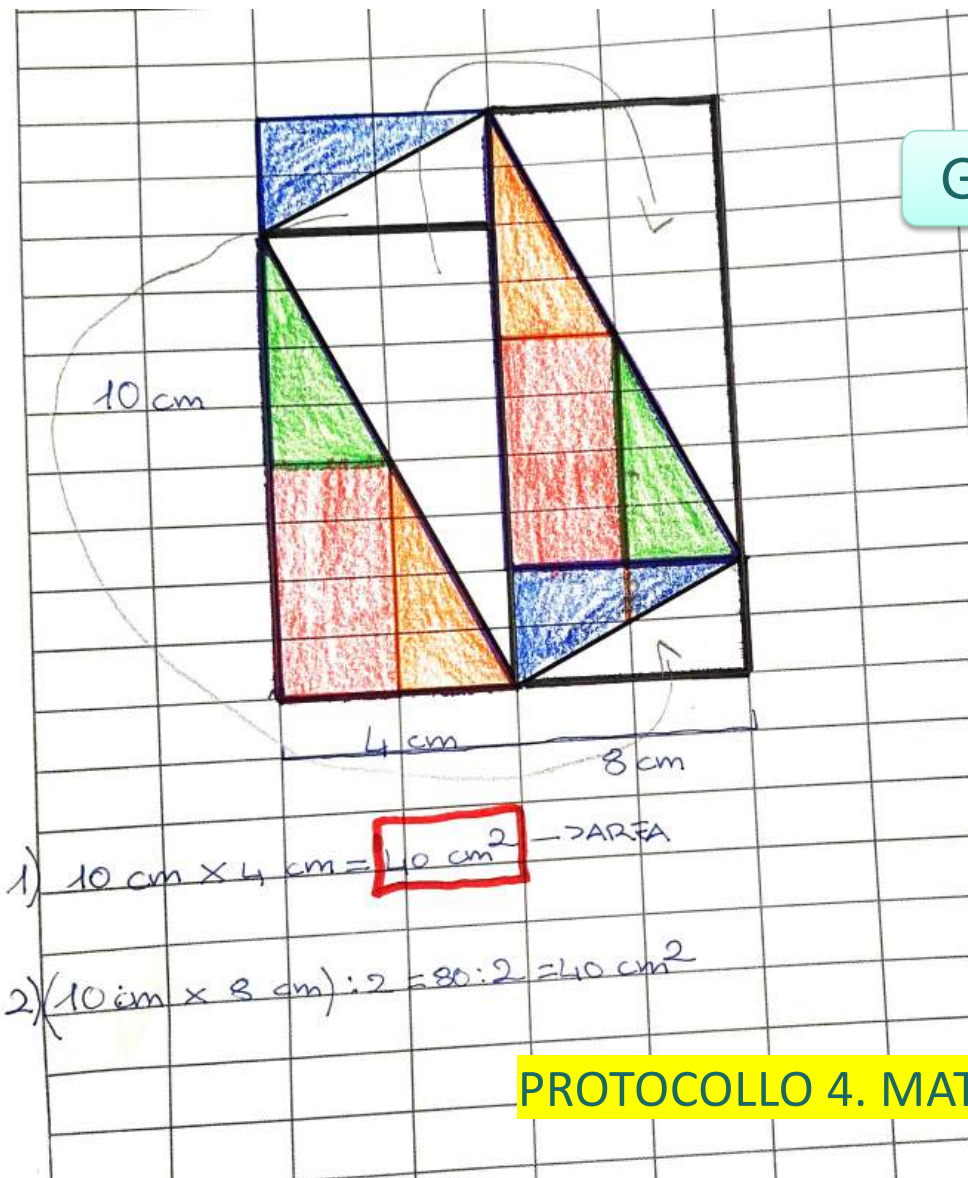 G
10 cm
4 cm
8 cm
1) 10 cm × 4 cm = 40 cm² —>AREA
2) (10 cm × 8 cm) : 2 = 80 : 2 = 40 cm²
PROTOCOLLO 4. MAT